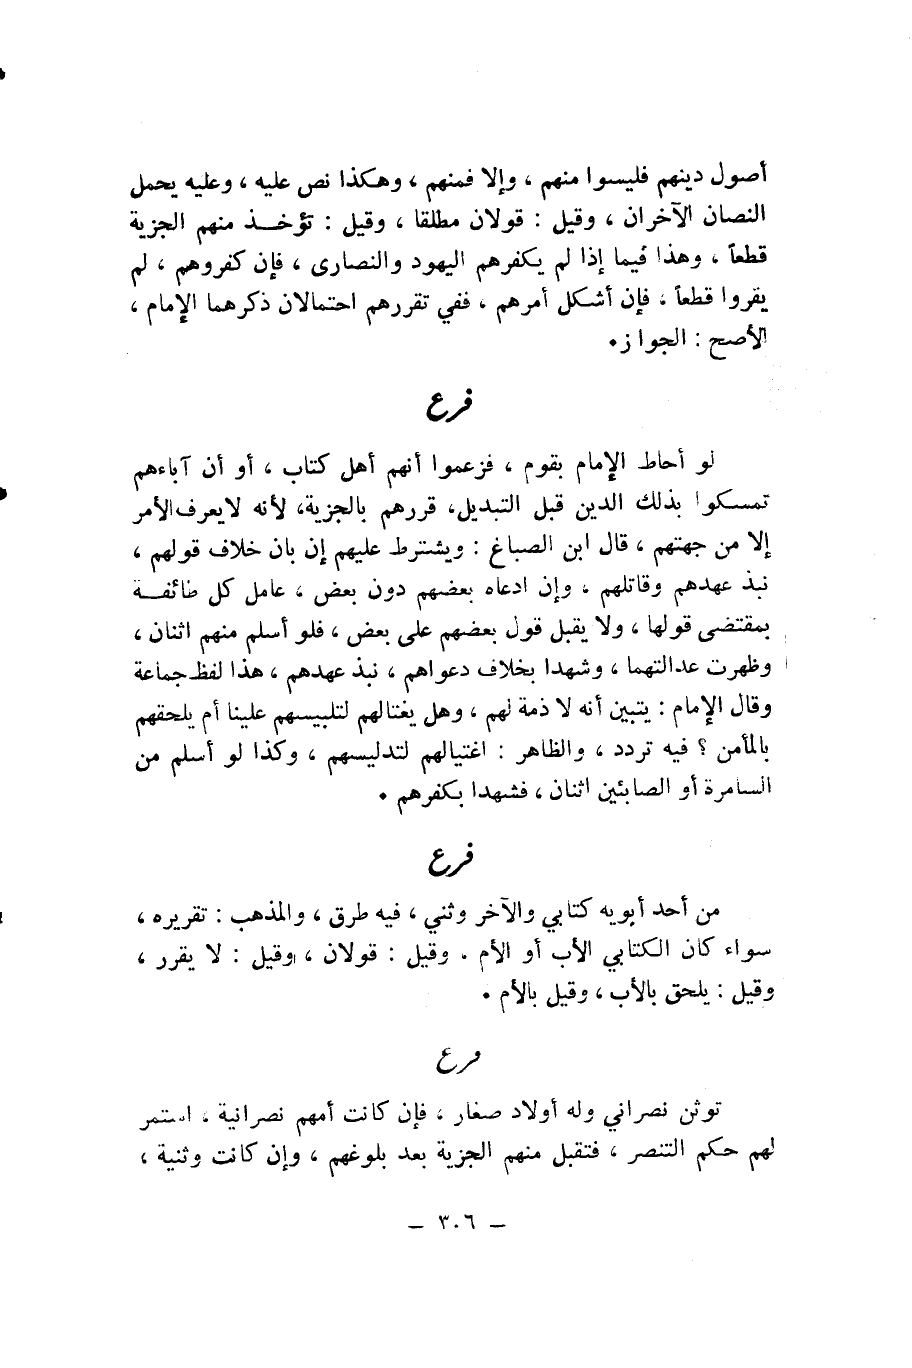 أصول دينهم فليسوا منهم ، وإلا فمنهم ، وهكذا نص عليه ، وعليه يحمل
النصان الآخران ، وقيل : قولان مطلقا ، وقيل : تؤخذ منهم الجزية
قطعاً ، وهذا فيما إذا لم يكفرهم اليهود والنصارى ، فإن كفروهم ، لم
يقروا قطعاً ، فإن أشكل أمرهم ، ففي تقررهم احتمالان ذكرهما الإمام ،
الأصح : الجواز.
فرع
لو أحاط الإمام بقوم ، فزعموا أنهم أهل كتاب ، أو أن آباءهم
تمسكوا بذلك الدين قبل التبديل، قررهم بالجزية، لأنه لايعرف الأمر
إلا من جهتهم ، قال ابن الصباغ : ويشترط عليهم إن بان خلاف قولهم ،
نبذ عهدهم وقاتلهم ، وإن ادعاه بعضهم دون بعض ، عامل كل طائفة
بمقتضى قولها ، ولا يقبل قول بعضهم على بعض ، فلو أسلم منهم اثنان ،
وظهرت عدالتهما ، وشهدا بخلاف دعواهم ، نبذ عهدهم ، هذا لفظ جماعة
وقال الإمام : يتبين أنه لا ذمة لهم ، وهل يغتالهم لتلبيسهم علينا أم يلحقهم
بالمأمن ؟ فيه تردد ، والظاهر : اغتيالهم لتدليسهم ، وكذا لو أسلم من
السامرة أو الصابئين اثنان ، فشهدا بكفرهم .
فرع
من أحد أبويه كتابي والآخر وثني ، فيه طرق ، والمذهب : تقريره ،
سواء كان الكتابي الأب أو الأم . وقيل : قولان ، وقيل : لا يقرر ،
وقيل : يلحق بالأب ، وقيل بالأم .
فرع
توثن نصراني وله أولاد صغار ، فإن كانت أمهم نصرانية ، استمر
لهم حكم التنصر ، فتقبل منهم الجزية بعد بلوغهم ، وإن كانت وثنية ،
– ٣٠٦ –